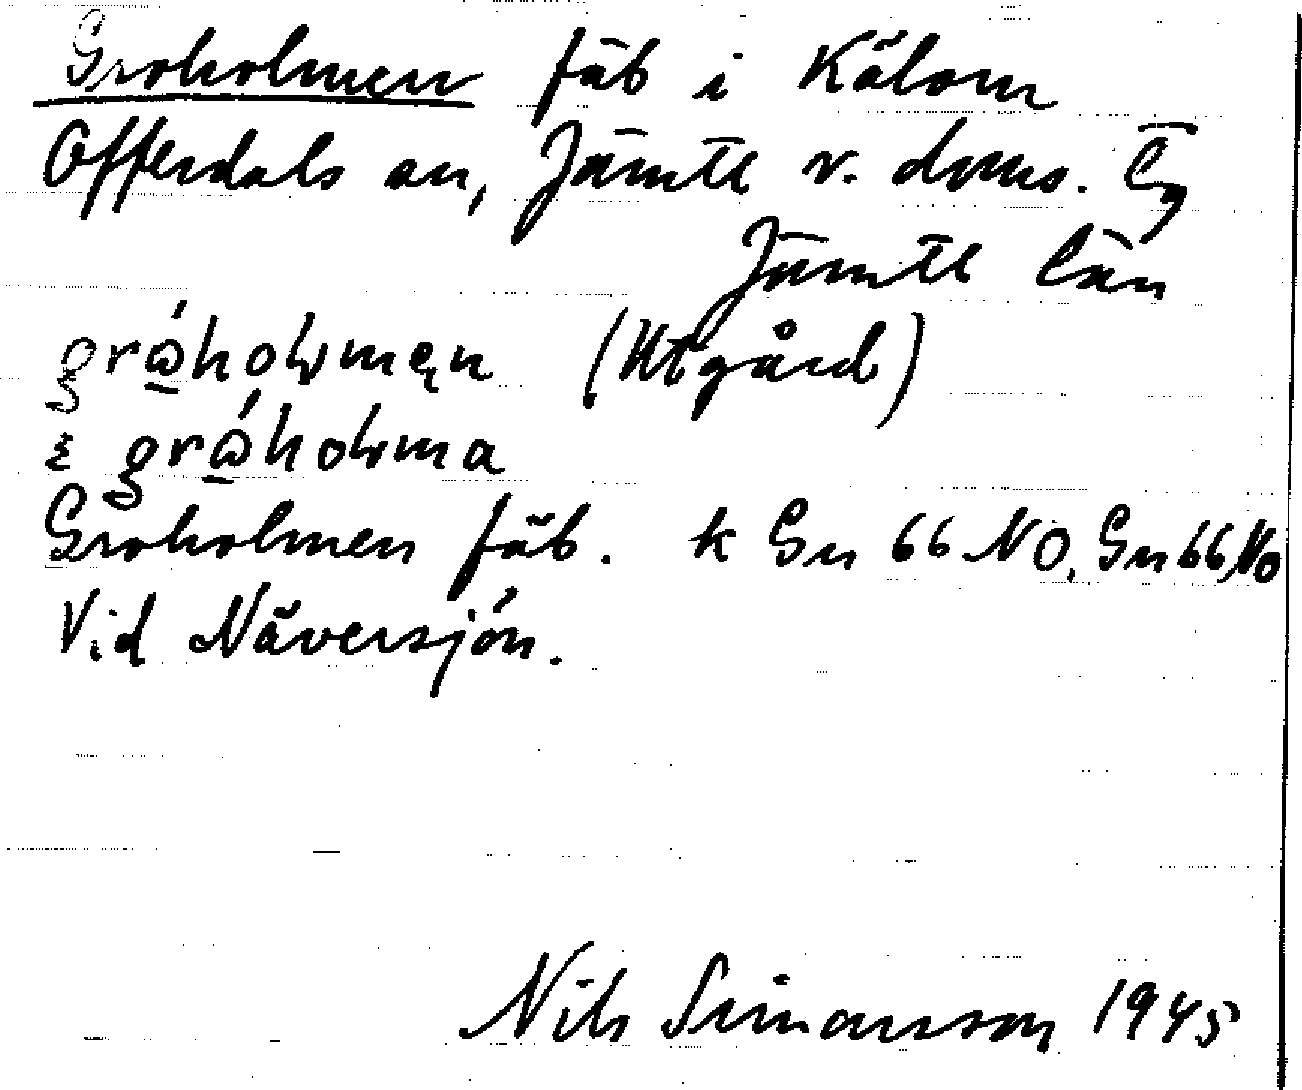 Groholmen fäb i Kälom
Offerdals sn, Jämtl v. doms. lg
Jämtl län
grώ̲holmen (Utgård)
ɛ grώ̲holma
Groholmen fäb. k Gn 66 NO, Gn 66, No
Vid Näversjön.
Nils Simonsson 1945